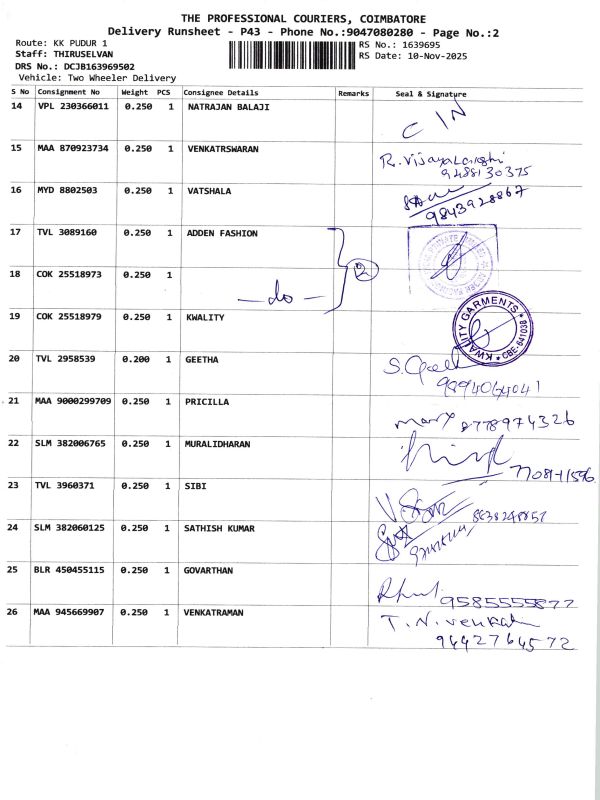 THE PROFESSIONAL COURIERS, COIMBATORE
Delivery Runsheet - P43 - Phone No.:9047080280 - Page No.:2
Route: KK PUDUR 1
Staff: THIRUSELVAN
DRS No.: DCJB163969502
Vehicle: Two Wheeler Delivery
RS No.: 1639695
RS Date: 10-Nov-2025
S No Consignment No Weight PCS Consignee Details Remarks Seal & Signature
14 VPL 230366011 0.250 1 NATRAJAN BALAJI
15 MAA 870923734 0.250 1 VENKATRSWARAN R. Vijayalakshi
9488130375
16 MYD 8802503 0.250 1 VATSHALA
9843928867
17 TVL 3089160 0.250 1 ADDEN FASHION
2
18 COK 25518973 0.250 1
— do —
19 COK 25518979 0.250 1 KWALITY
KWALITY GARMENTS CBE-641038
20 TVL 2958539 0.200 1 GEETHA
9894064041
21 MAA 9000299709 0.250 1 PRICILLA
mary 8778974326
22 SLM 382006765 0.250 1 MURALIDHARAN
23 TVL 3960371 0.250 1 SIBI
24 SLM 382060125 0.250 1 SATHISH KUMAR
25 BLR 450455115 0.250 1 GOVARTHAN
9585555877
26 MAA 945669907 0.250 1 VENKATRAMAN T. N. Venkat
9442764572